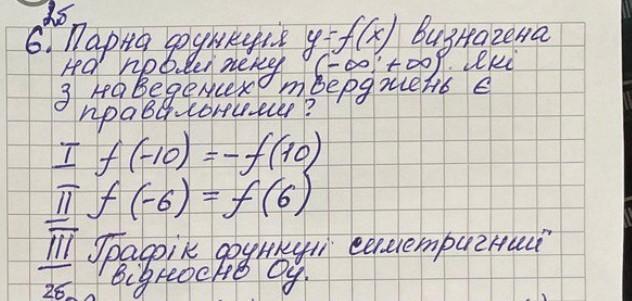 2б
6. Парна функція y=f(x) визначена
на проміжку (-∞; +∞). Які
з наведених тверджень є
правальними?
I f(-10) = -f(10)
II f(-6) = f(6)
III Графік функції симетричний
відносно Oy.
2б